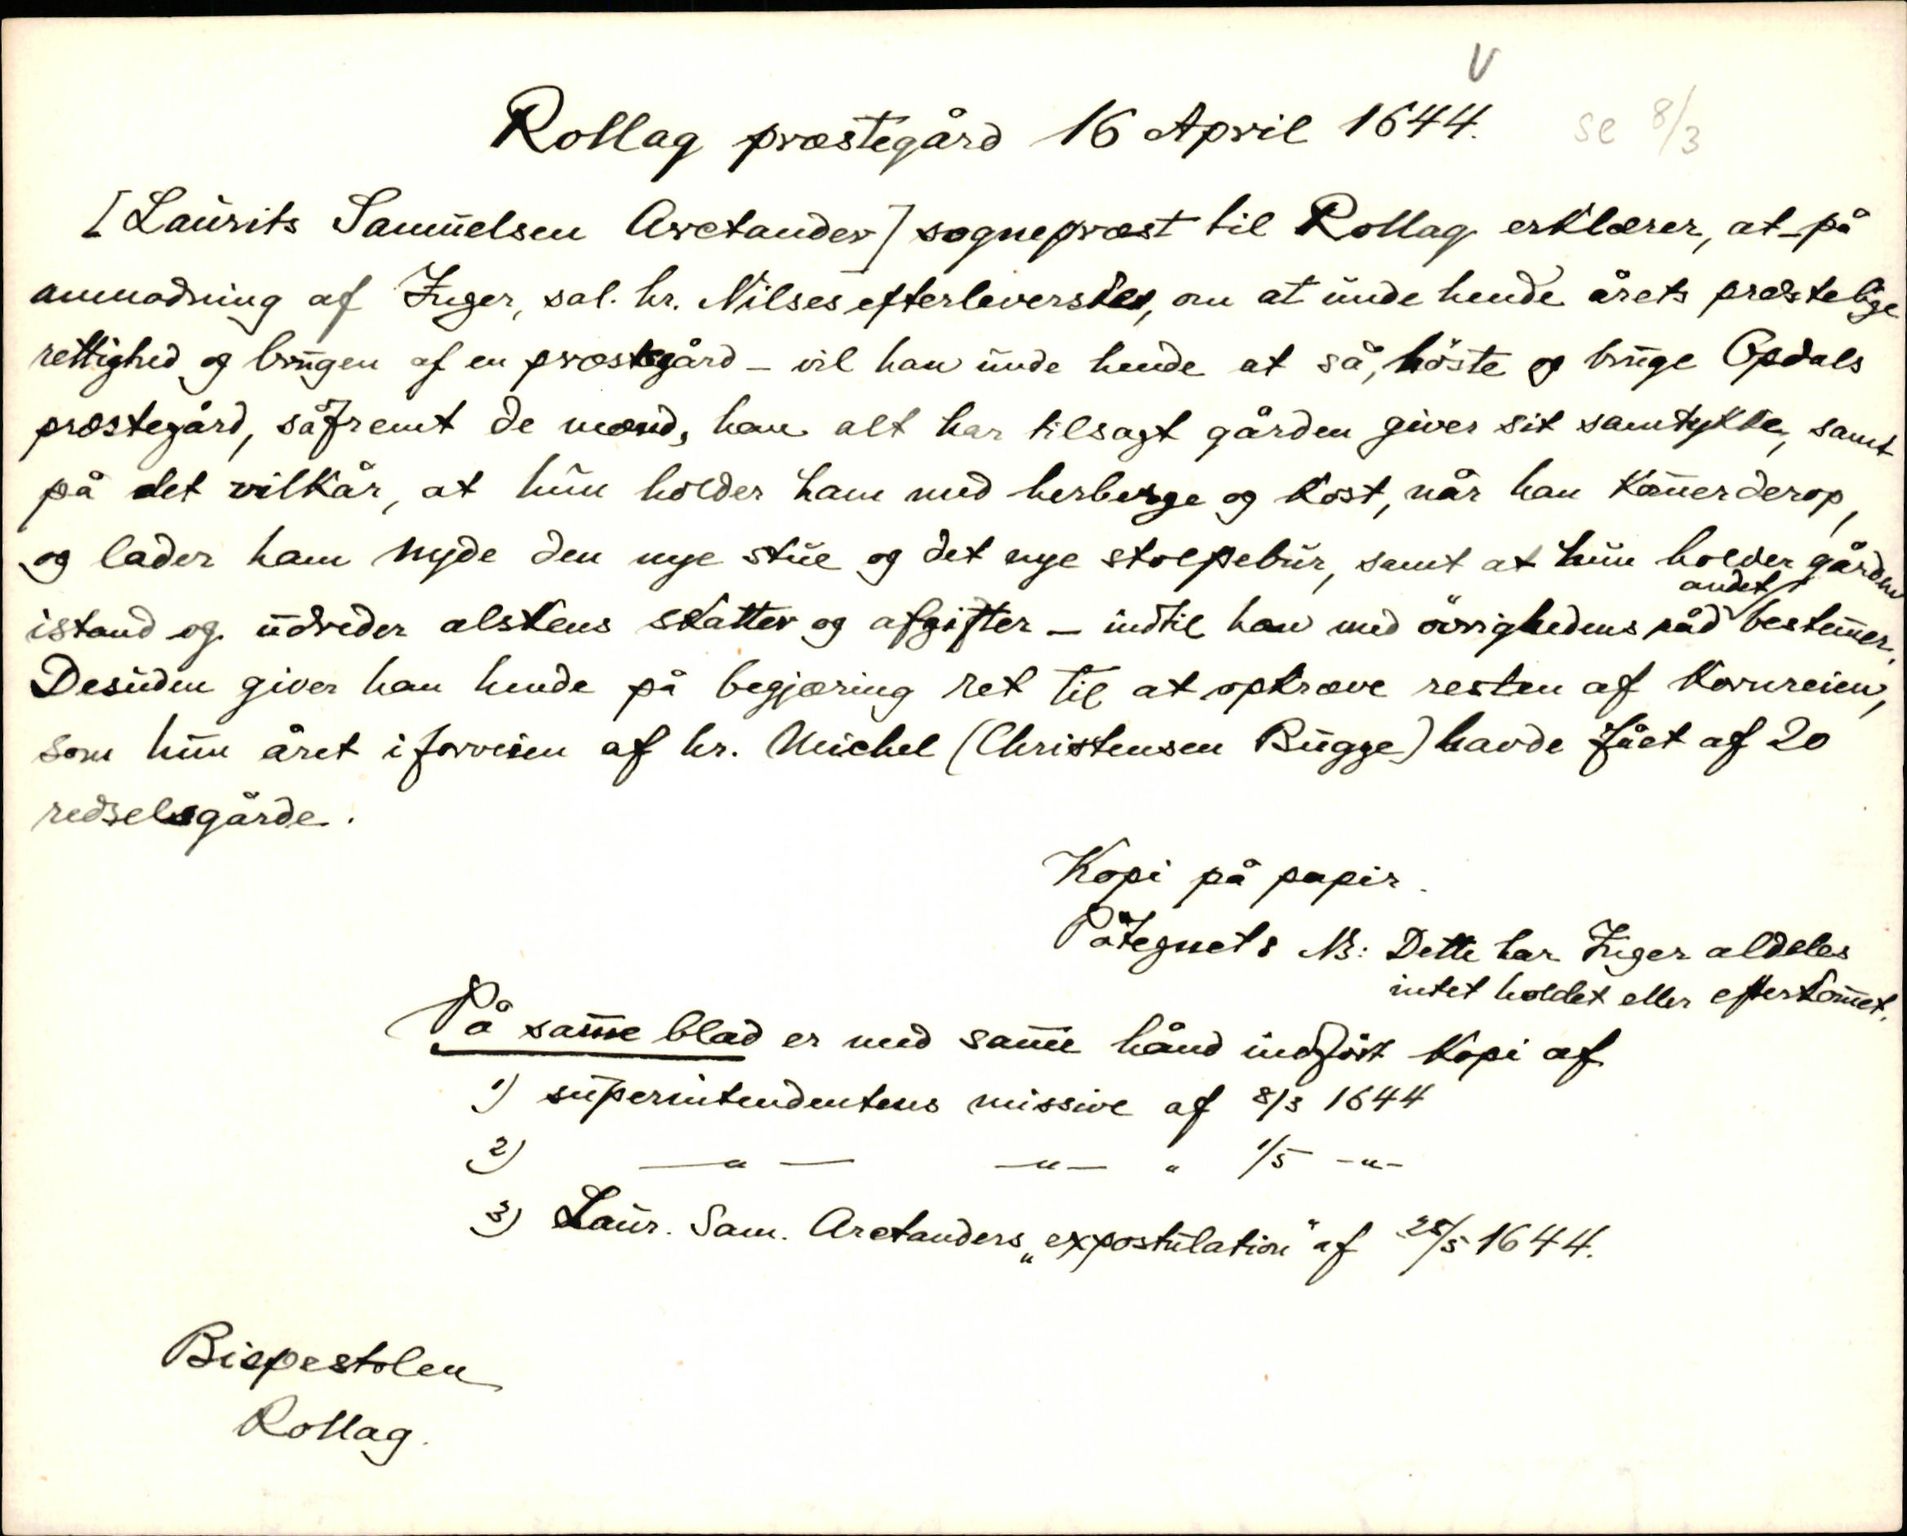 V
Rollag præstegård 16 April 1644. se 8/3
[Laurits Samuelsen Arctander] sognepræst til Rollag erklærer, at på
anmodning af Inger, sal. hr. Nilses efterleverske, om at unde hende årets præstelige
rettighed og brugen af en præstegård – vil han unde hende at så, höste og bruge Opdals
præstegård, såfremt de mænd, han alt har tilsagt gården giver sit samtykke, samt
på det vilkår, at hun holder ham med herberge og kost, når han kom̄er derop,
og lader ham nyde den nye stue og det nye stolpebur, samt at hun holder gården
istand og udreder alskens skatter og afgifter – indtil han med övrighedens råd andet bestem̄er.
Desuden giver han hende på begjæring ret til at opkræve resten af kornreien,
som hun året iforveien af hr. Michel (Christensen Bugge) havde fået af 20
redselsgårde.
Kopi på papir.
Påtegnet: NB: Dette har Inger aldeles
intet holdet eller efterkom̄et.
På sam̄e blad er med sam̄e hånd indfört kopi af
1) superintendentens missive af 8/3 1644
2) —„— —„— „ 1/5 -„-
3) Laur. Sam. Arctanders „expostulation“ af 28/5 1644.
Bispestolen
Rollag.